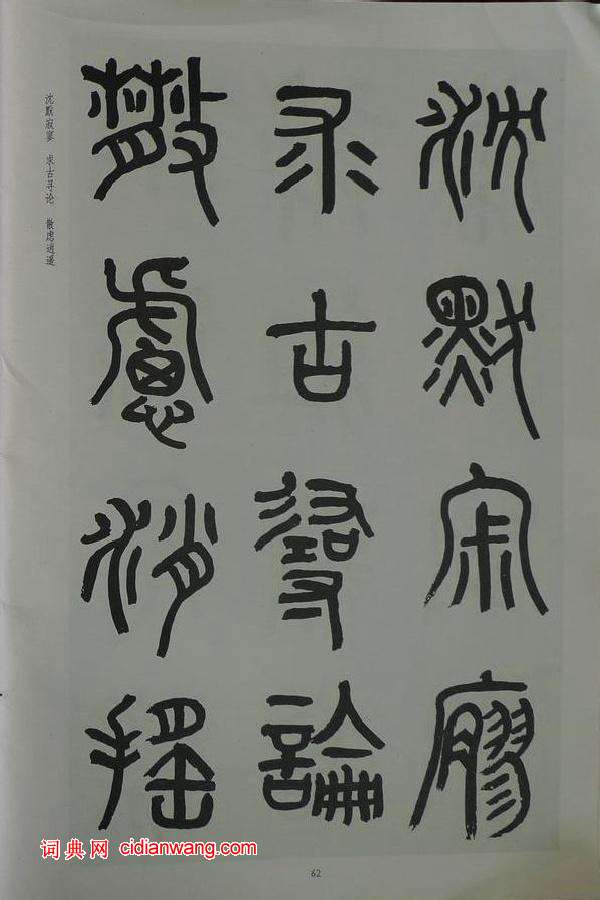 沈默寂廫
求古尋論
散慮消搖
沈默寂寥 求古寻论 散虑逍遥
词典网 cidianwang.com
62